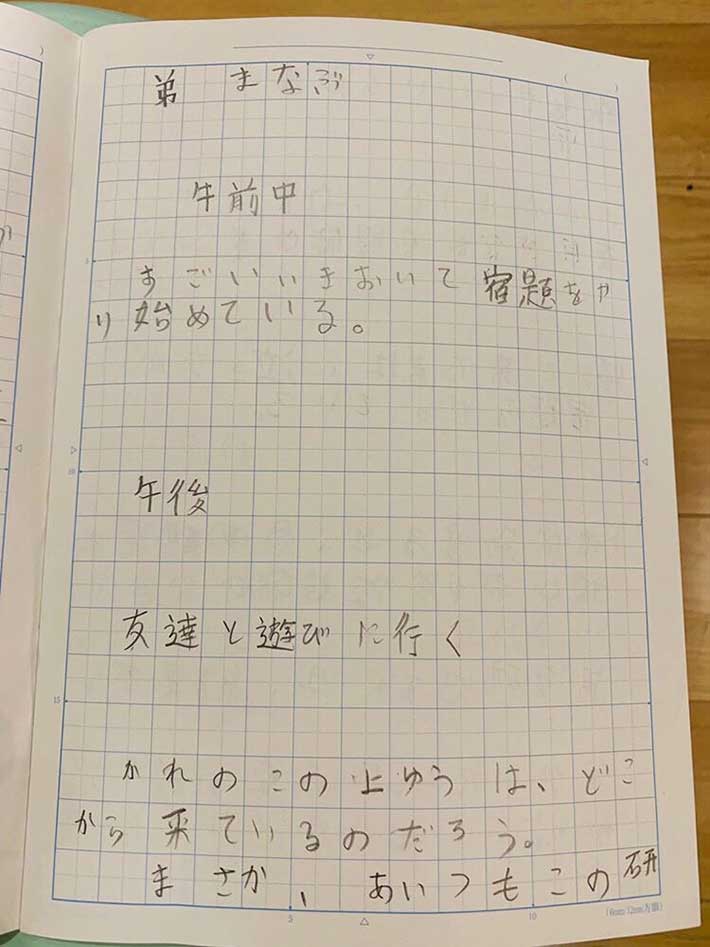 弟 まなぶ
午前中
すごいいきおいで宿題をや
り始めている。
午後
友達と遊びに行く
かれのこの上ゆうは、どこ
から来ているのだろう。
まさか、あいつもこの研
5
10
15
5
10
(6mm/12mm方眼)